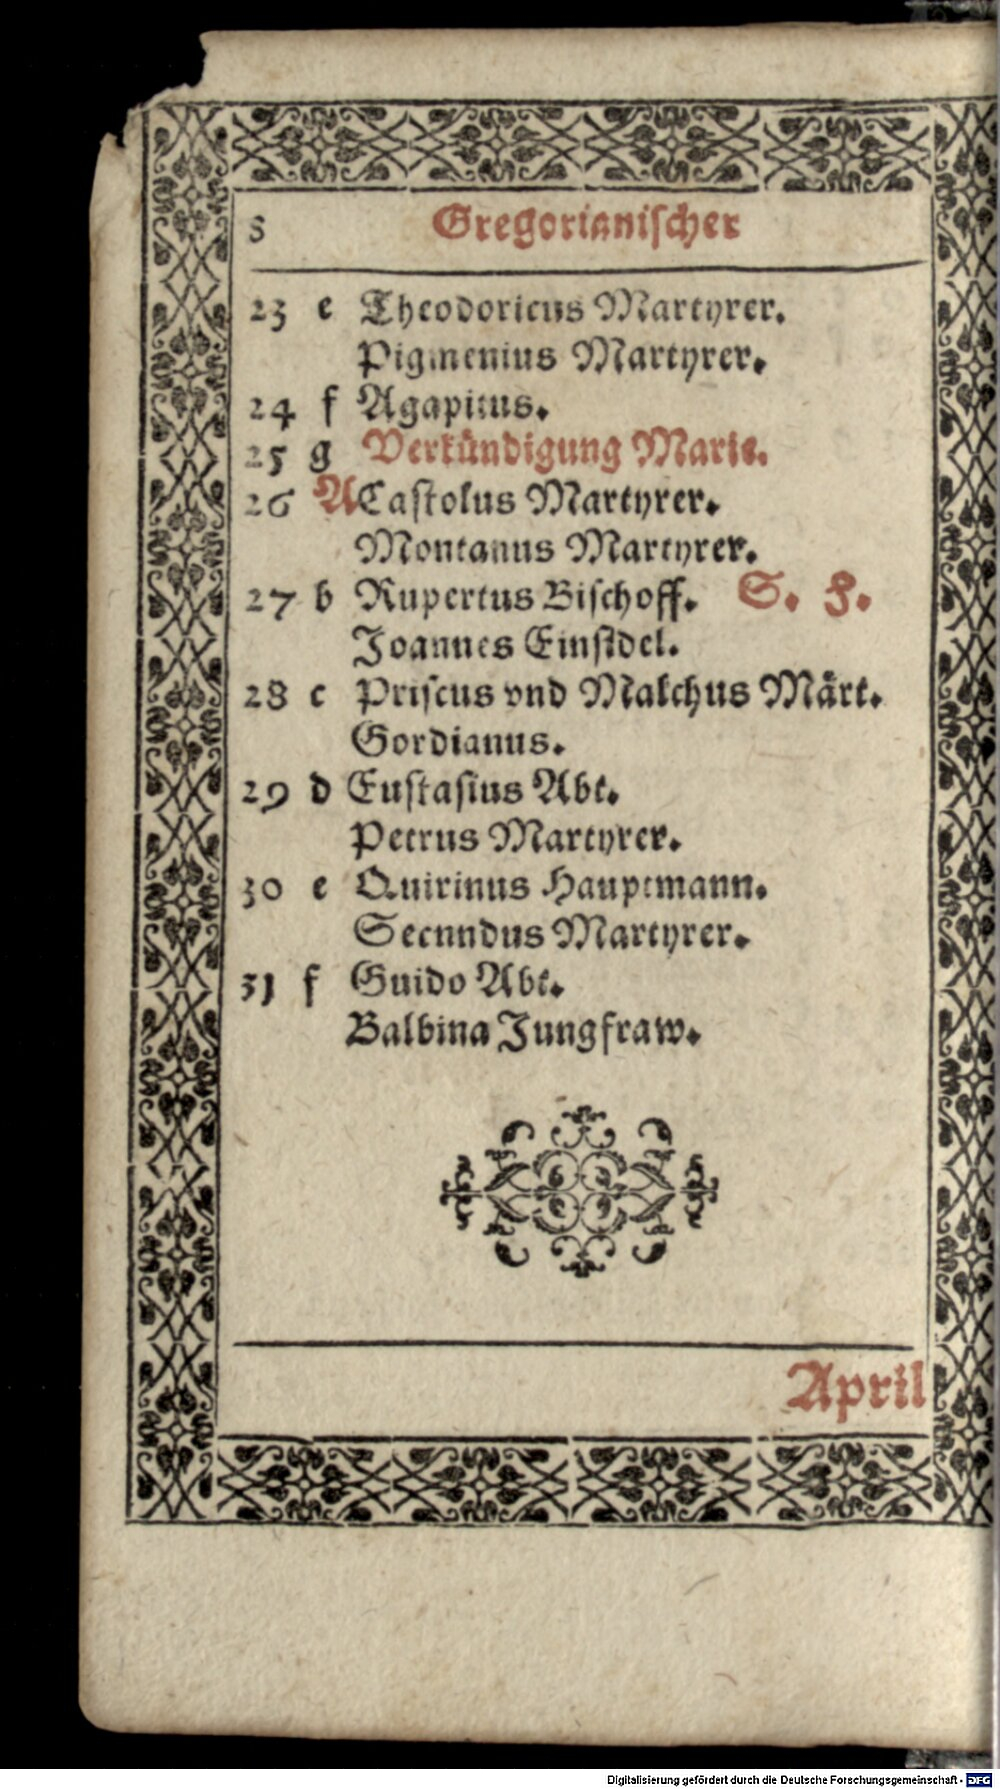 8 Gregorianischer
23 e Theodoricus Martyrer.
Pigmenius Martyrer.
24 f Agapitus.
25 g Verkündigung Marie.
26 A Castolus Martyrer.
Montanus Martyrer.
27 b Rupertus Bischoff. S. F.
Joannes Einsidel.
28 c Priscus vnd Malchus Märt.
Gordianus.
29 d Eustasius Abt.
Petrus Martyrer.
30 e Quirinus Hauptmann.
Secnndus Martyrer.
31 f Guido Abt.
Balbina Jungfraw.
April
Digitalisierung gefördert durch die Deutsche Forschungsgemeinschaft - DFG